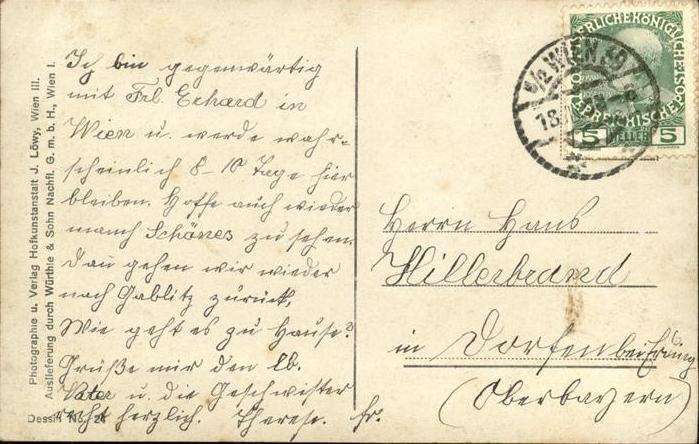 Photographie u. Verlag Hofkunstanstalt J. Löwy, Wien III.
Auslieferung durch Würthle & Sohn Nachfl. G. m. b. H., Wien I.
Ich bin gegenwärtig
mit Frl. Erhard in
Wien u. werde wahr-
scheinlich 8-10 Tage hier
bleiben. Hoffe auch wieder
manch Schönes zu sehen.
Dan gehen wir wieder
nach Gablitz zurück.
Wie geht es zu Hause?
Grüße mir den lb.
Vater u. die Geschwister
recht herzlich. Therese.
Dessin No. 24
WIEN
18
5 HELLER 5
Herrn Hans
Hillerbrand
in Dorfen bei Erding
(Oberbayern)